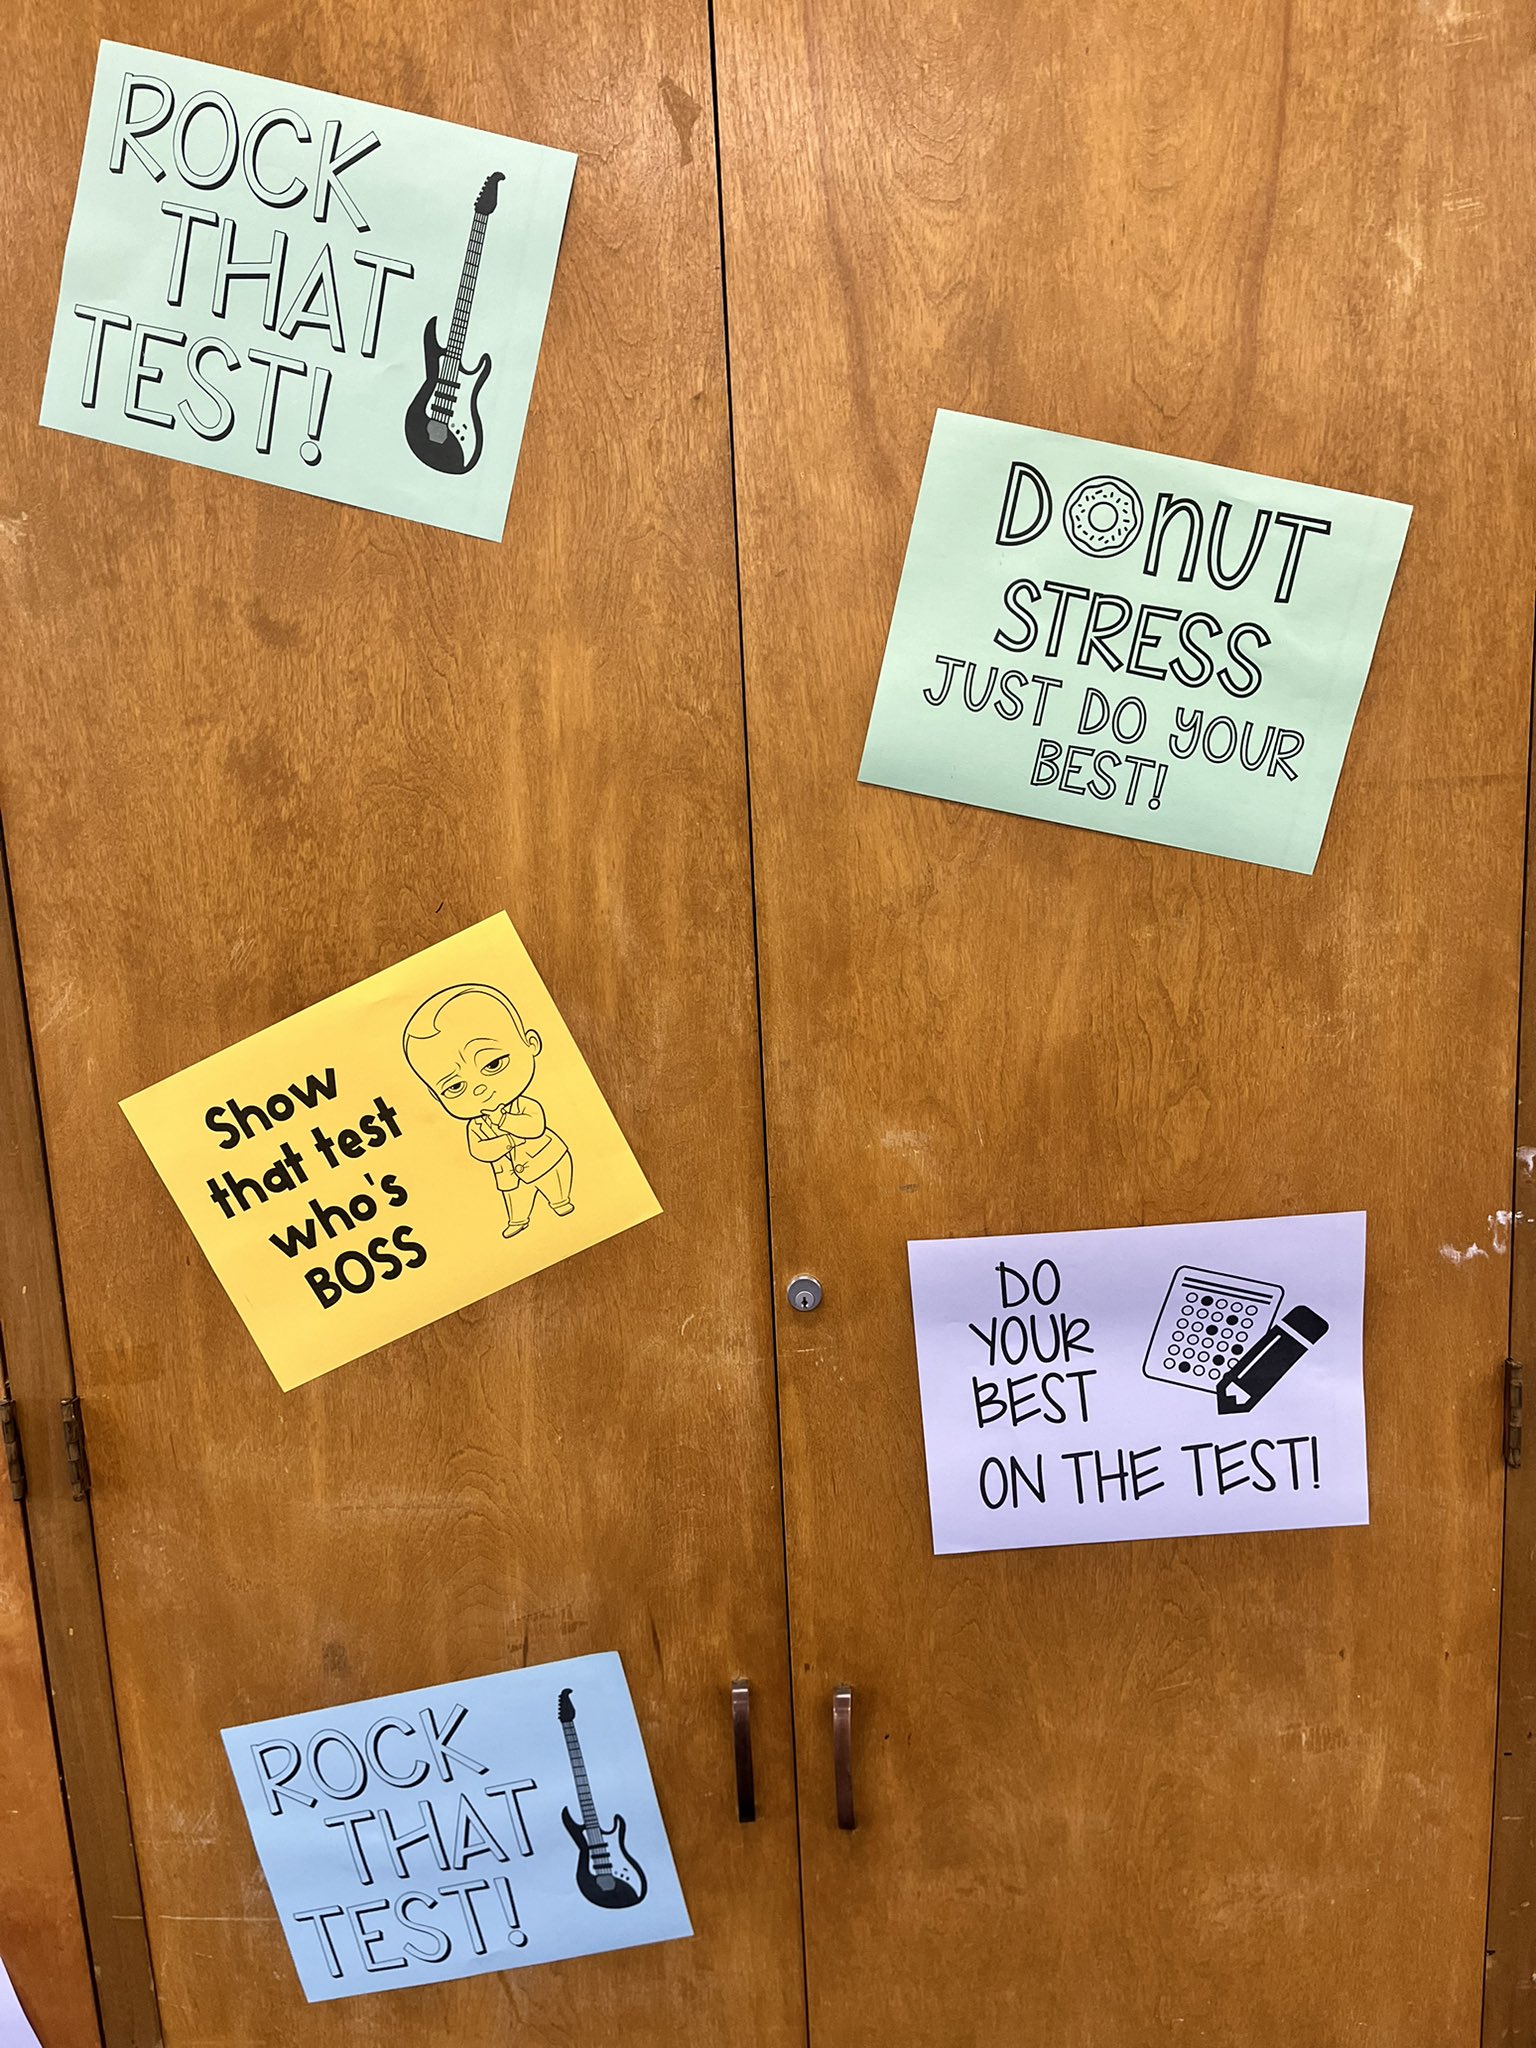 ROCK
THAT
TEST!
DONUT
STRESS
JUST DO YOUR
BEST!
Show
that test
who's
BOSS
DO
YOUR
BEST
ON THE TEST!
ROCK
THAT
TEST!